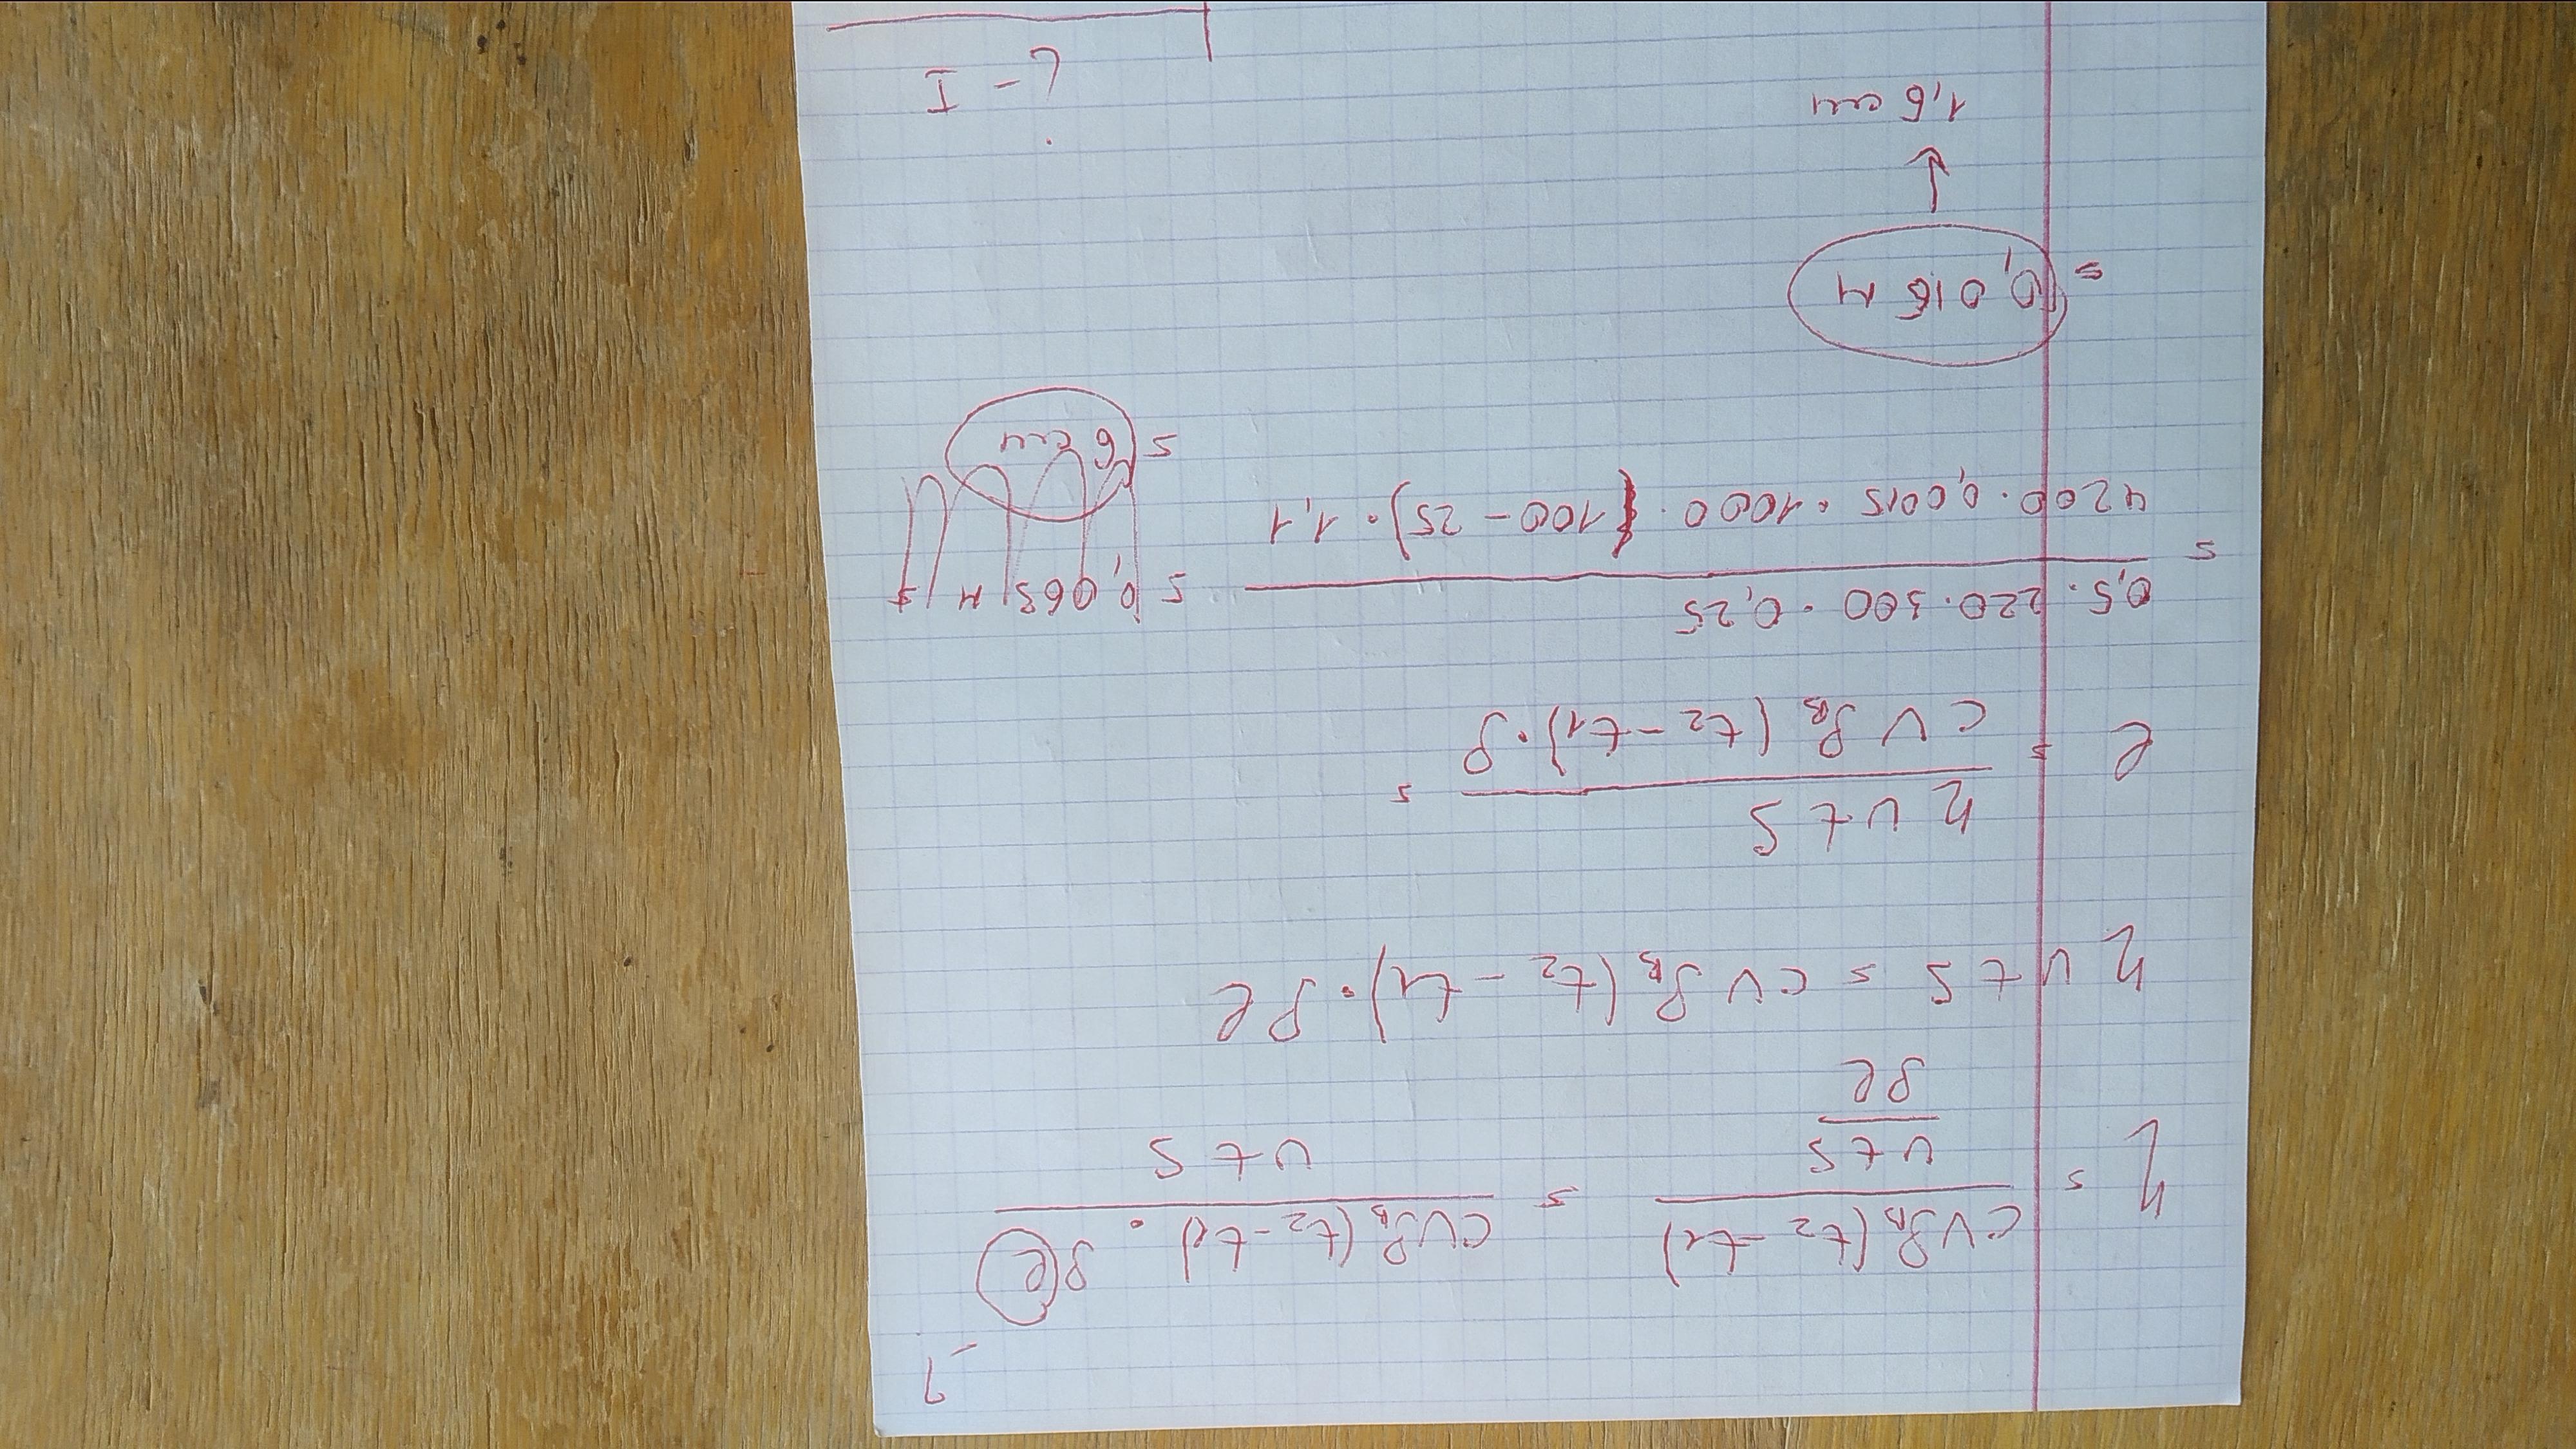 η = cVρв(t2 - t1) / (UtS / ρℓ) = cVρв(t2 - t1) · ρℓ / UtS
ηUtS = cVρв(t2 - t1) · ρℓ
ℓ = ηUtS / cVρв(t2 - t1) · ρ =
= 0,5 · 220 · 300 · 0,25 / 4200 · 0,0015 · 1000 · (100 - 25) · 1,1 = 0,063 м =
= 6 см
= 0,016 м
↓
1,6 см
I - ?